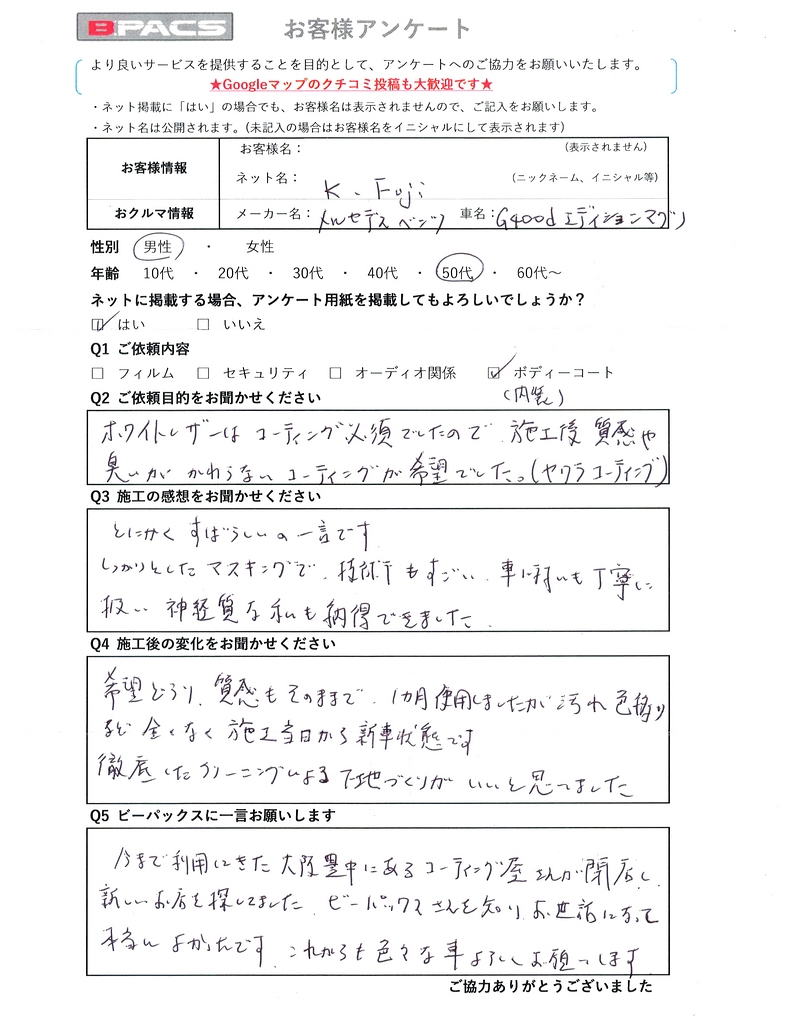 B-PACS お客様アンケート
より良いサービスを提供することを目的として、アンケートへのご協力をお願いいたします。
★Googleマップのクチコミ投稿も大歓迎です★
・ネット掲載に「はい」の場合でも、お客様名は表示されませんので、ご記入をお願いします。
・ネット名は公開されます。(未記入の場合はお客様名をイニシャルにして表示されます)
お客様情報
お客様名： (表示されません)
ネット名： K.Fuji (ニックネーム、イニシャル等)
おクルマ情報 メーカー名：メルセデスベンツ 車名：G400d エディションマグノ
性別 男性 ・ 女性
年齢 10代 ・ 20代 ・ 30代 ・ 40代 ・ 50代 ・ 60代〜
ネットに掲載する場合、アンケート用紙を掲載してもよろしいでしょうか？
☑ はい □ いいえ
Q1 ご依頼内容
□ フィルム □ セキュリティ □ オーディオ関係 ☑ ボディーコート
(内装)
Q2 ご依頼目的をお聞かせください
ホワイトレザーは コーティング必須でしたので 施工後 質感や
臭いが かわらない コーティングが希望でした。(ヤワラコーティング)
Q3 施工の感想をお聞かせください
とにかく すばらしいの一言です
しっかりとしたマスキングで、技術もすごい、車に対しても丁寧に
扱い 神経質な私も納得できました.
Q4 施工後の変化をお聞かせください
希望どうり、質感もそのままで、1カ月使用しましたが汚れ 色移り
など 全くなく 施工当日から新車状態です
徹底したクリーニングによる 下地づくりが いいと思ってました
Q5 ビーパックスに一言お願いします
今まで利用してきた 大阪豊中にあるコーティング屋さんが閉店し、
新しいお店を探してました ビーパックスさんを知り お世話になって
本当に よかったです. これからも色々な車よろしくお願いします
ご協力ありがとうございました